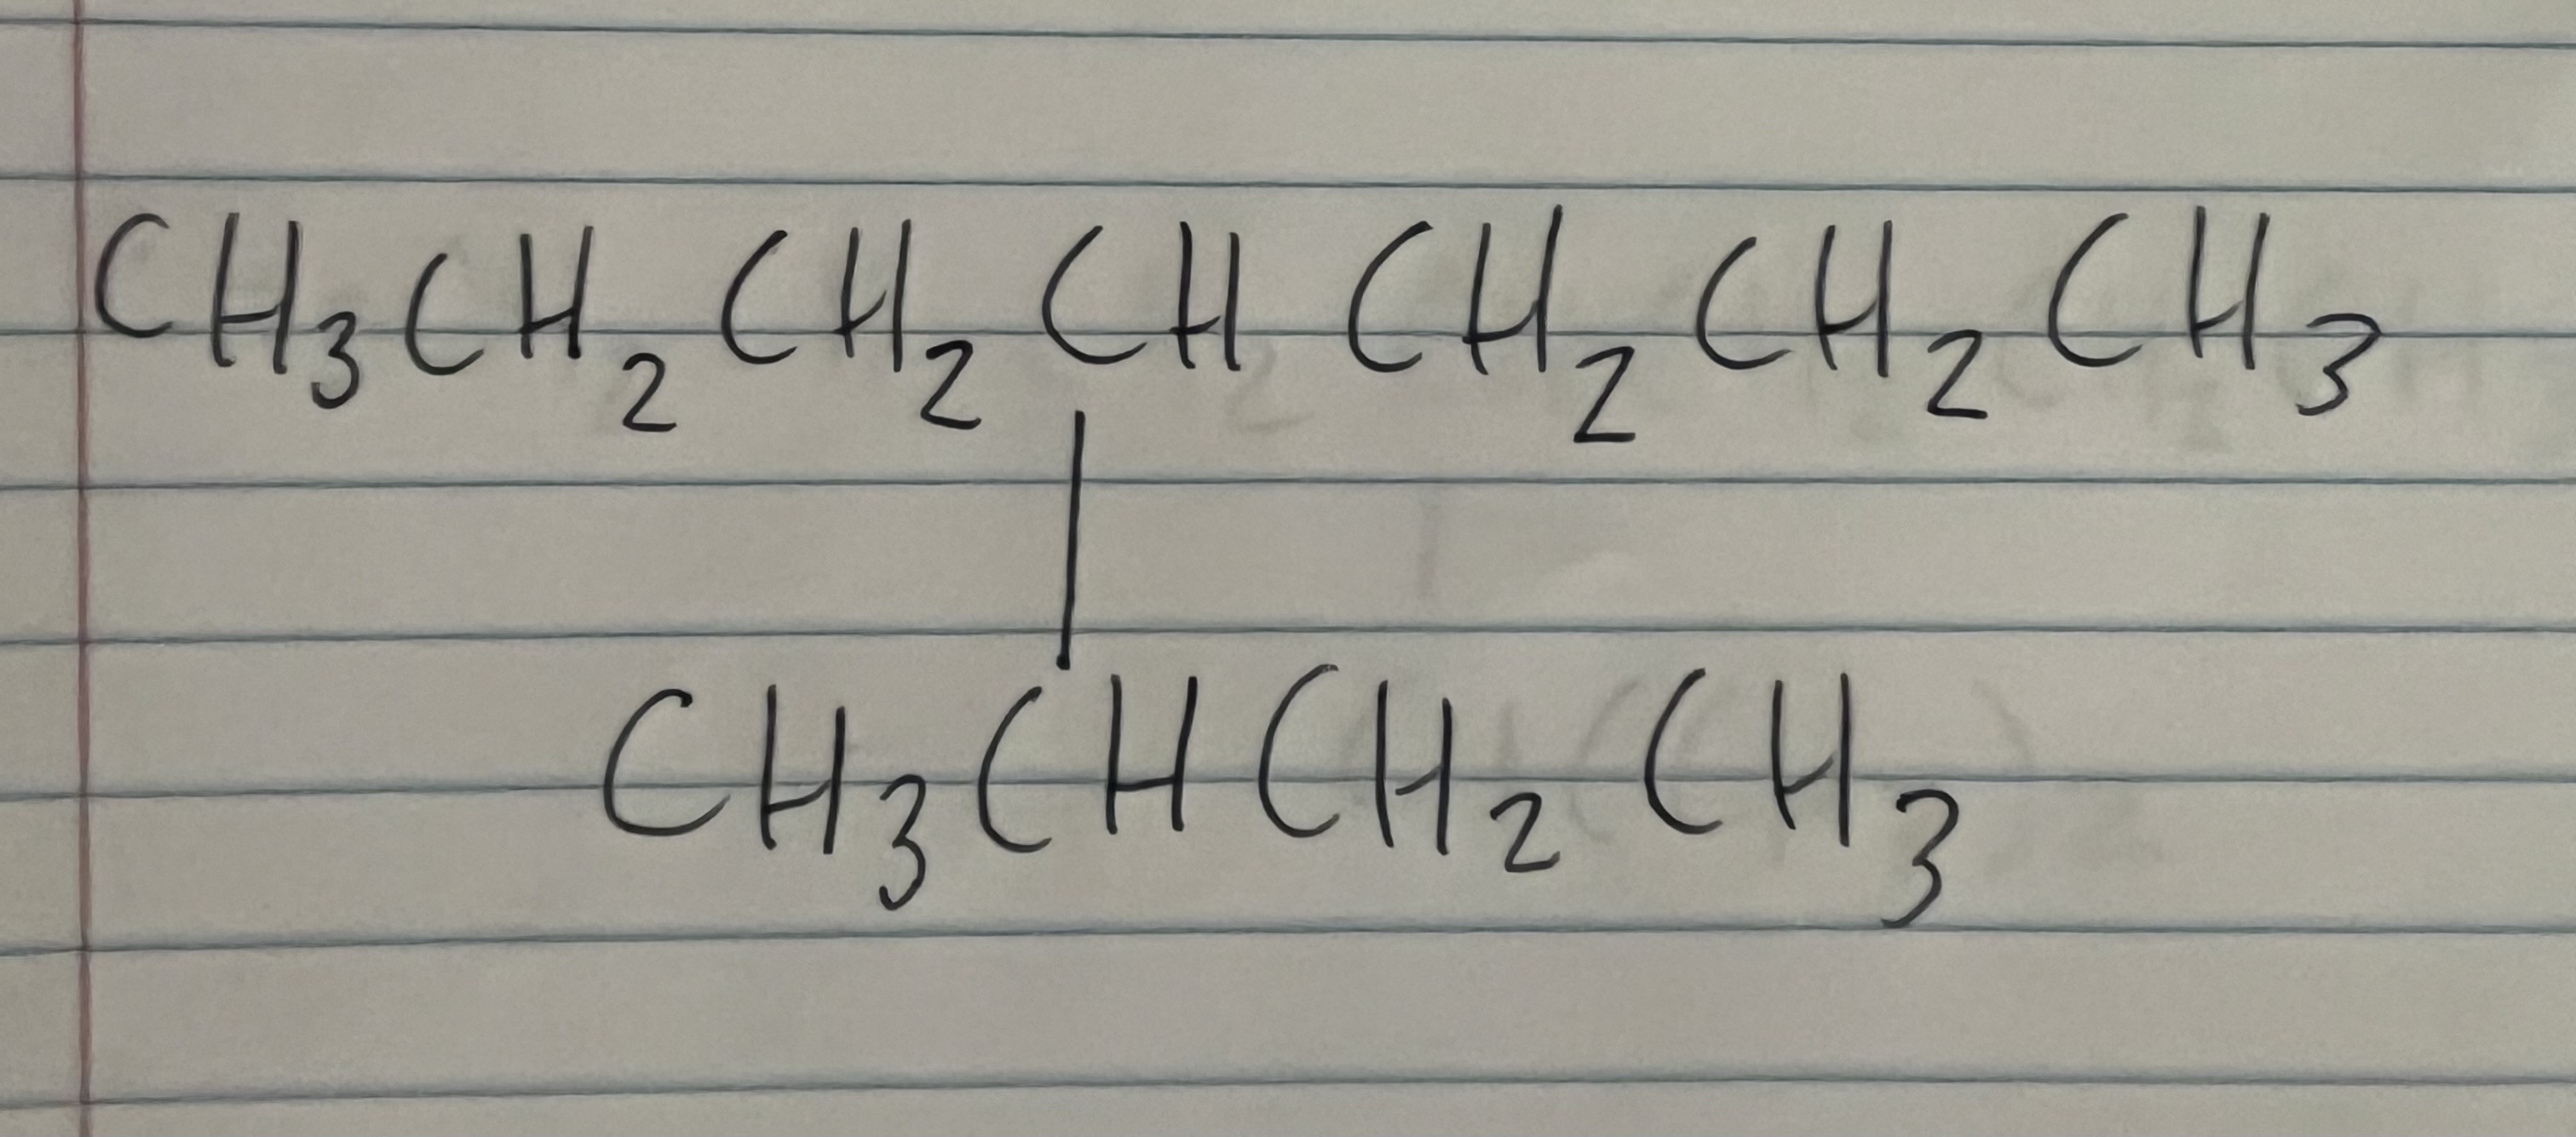 CH₃CH₂CH₂CHCH₂CH₂CH₃
|
CH₃CHCH₂CH₃